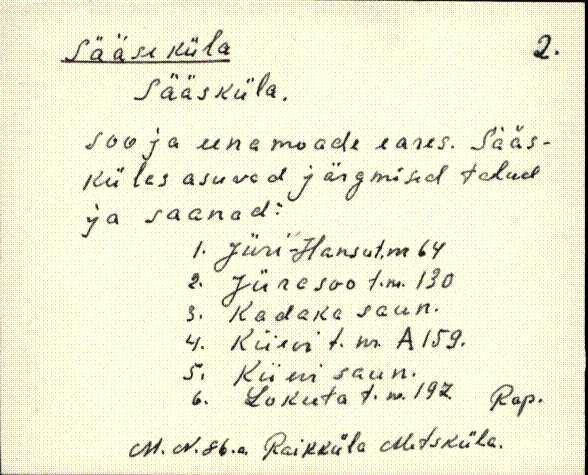 Sääseküla 2.
Sääsküla.
soo ja eenamoade eares. Sääs-
küles asuvad järgmised talud
ja saanad:
1. Jüri-Hansu t. nr 64
2. Jürasoo t. nr. 130
3. Kadaka saun.
4. Kiievi t. nr. A 159.
5. Kiievi saun.
6. Lokuta t. nr. 197 Rap.
M. N. 86. a. Raikküla Metsküla.